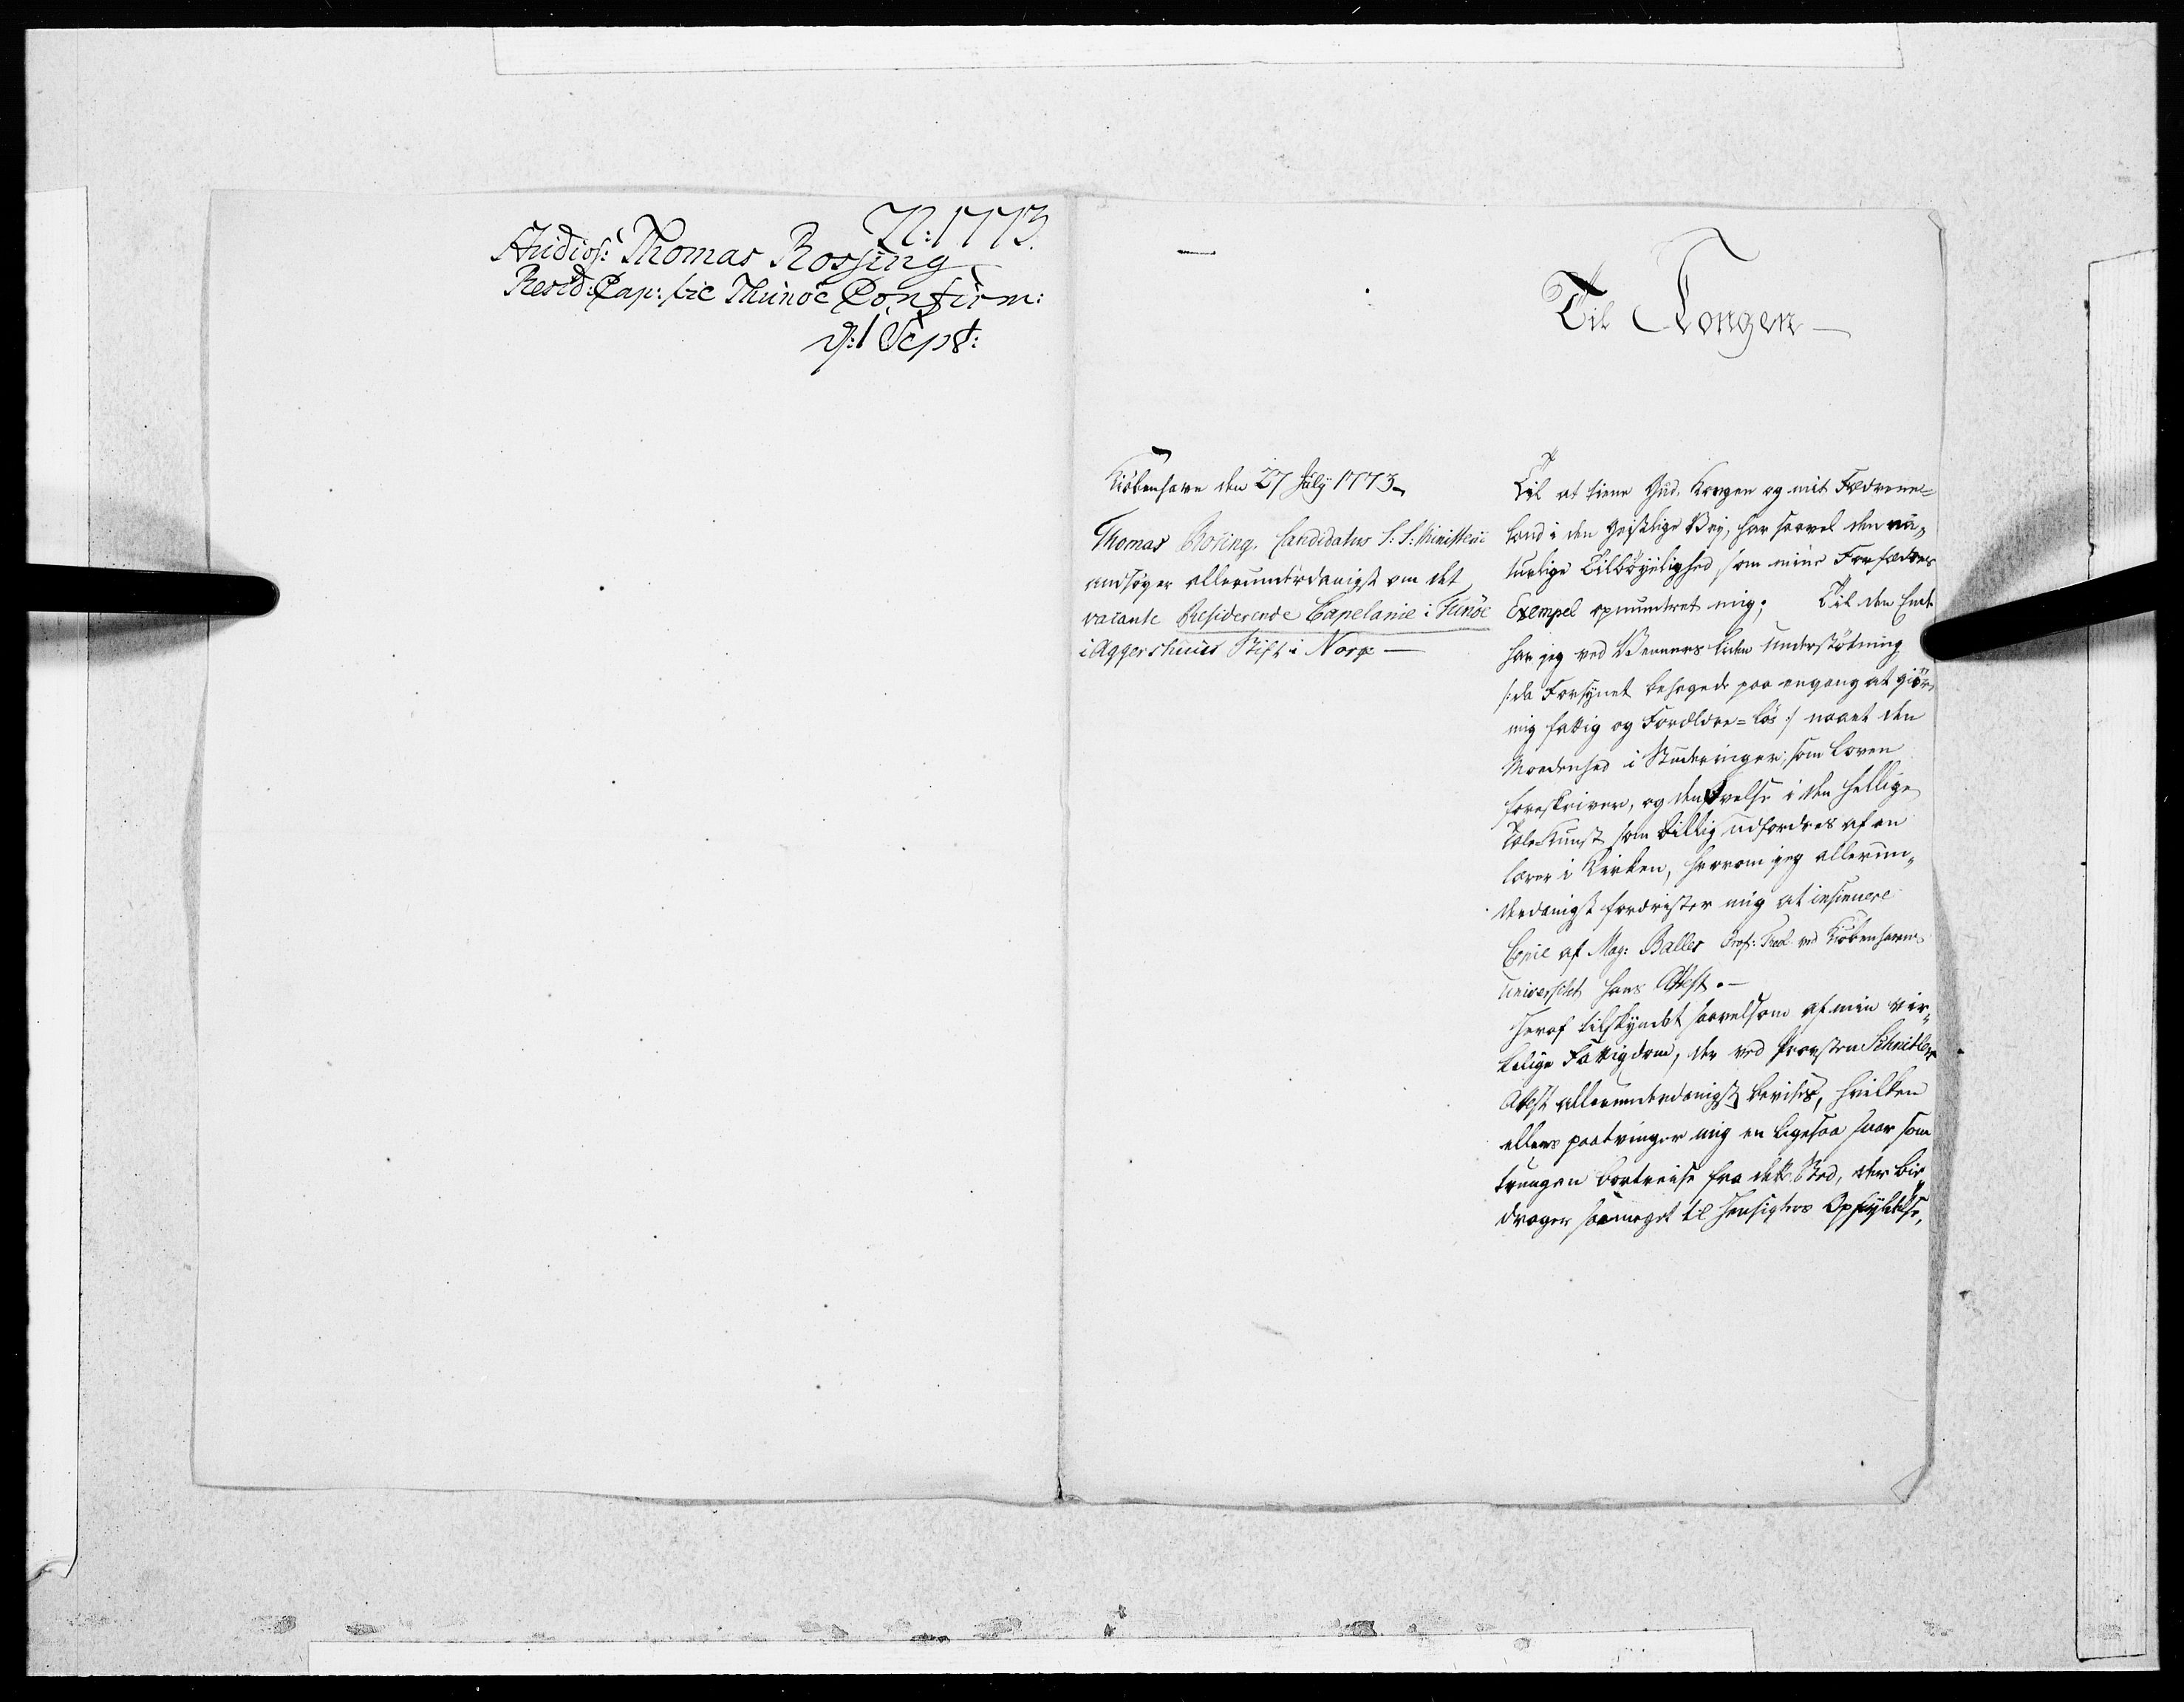 N: 1773.
Studios: Thomas Rossing
Resid: Cap: til Thunøe Confirm:
d: 1 Sept:
Til Kongen
Kiöbenhavn den 27 July 1773
Thomas Rosing. Candidatus S: S: Ministerii
andsøger allerunderdanigst om det
vacante Residerende Capelanie i Tunöe
i Aggershuus Stift i Norge
Til at tiene Gud, Kongen og mit Fædrene=
land i den geistlige Vey, har saavel den na„
turlige Tilböyelighed, som mine Forfædres
Exempel opmuntret mig; Til den Ende
har jeg ved Venners liden Understötning
/: da Forsynet behagede paa engang at giøre
mig fattig og Forældre=lös :/ naaet den
Moedenhed i Studeringer, som Loven
foreskriver, og den Øvelse i den hellige
Tale-Kunst som billig udfordres af en
Lærer i Kirken, hvorom jeg allerun„
derdanigst fordrister mig at insinuere
Copie af Mag: Balles Prof: Theol. ved Kiøbenhavns
Universitet hans Attest.
Heraf tilskyndet saavelsom af min vir„
kelige Fattigdom, der ved Provsten Schnitlers
Attest allerunderdanigst bevises, hvilken
ellers paatvinger mig en ligesaa svar som
trungen bortreise fra dette Sted, der bi„
drager saameget til Hensigters Opfyldelse,